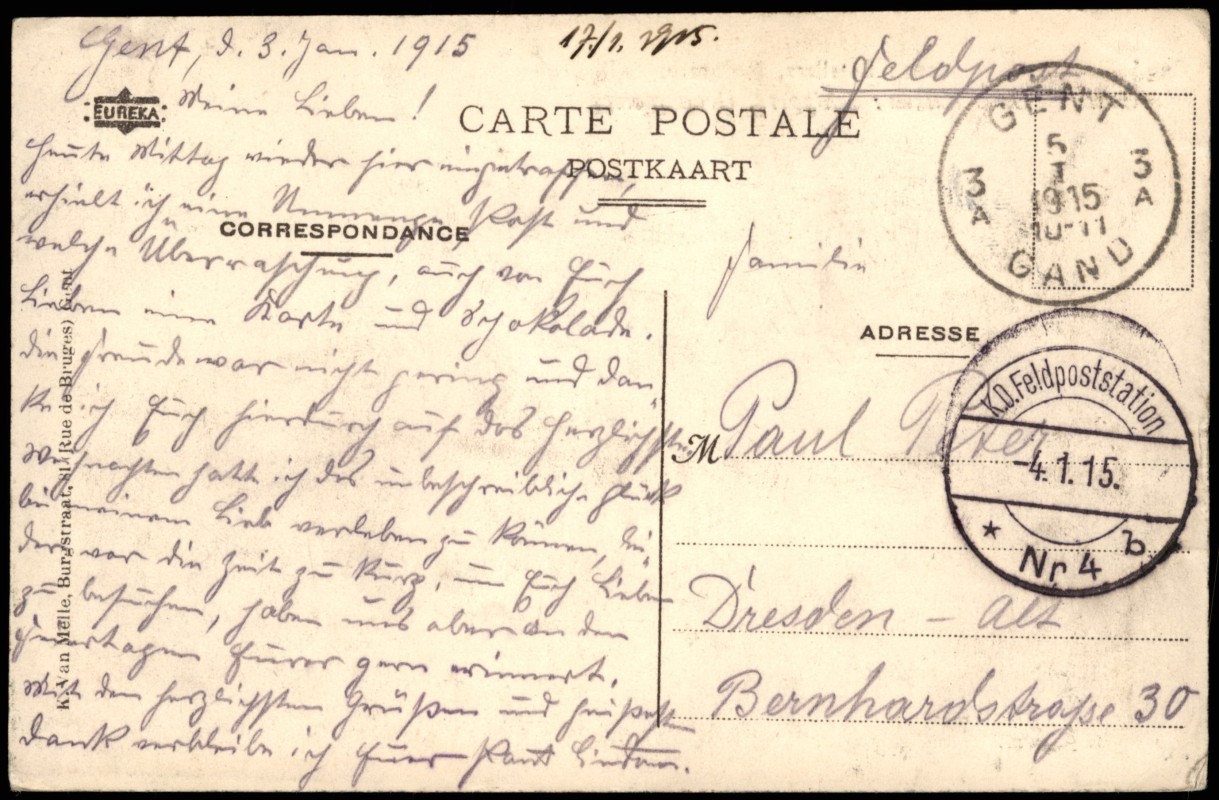 Gent, d. 3. Jan. 1915
17/1. 1915.
Feldpost
EUREKA
Meine Lieben!
CARTE POSTALE
POSTKAART
GENT
3 A
5
1
1915
10-11
3 A
GAND
Heute Mittag wieder hier eingetroffen,
erhielt ich eine Unmenge Post und
CORRESPONDANCE
welche Überraschung, auch von Euch
Lieben eine Karte und Schokolade.
Die Freude war nicht gering und dan
ke ich Euch hierdurch auf das herzlichste.
Weihnachten hatte ich das unbeschreibliche Glück
bei meinem Lieb verleben zu können, lei
der war die Zeit zu kurz, um Euch Lieben
zu besuchen, haben uns aber an den
Feiertagen Eurer gern erinnert.
Mit den herzlichsten Grüßen und
Dank verbleibe ich Euer
K. Van Melle, Burgstraat, 81 (Rue de Bruges) Gent
Familie
ADRESSE
M Paul Peter
K.D. Feldpoststation
-4.1.15.
* Nr 4 b
Dresden - Alt
Bernhardstraße 30